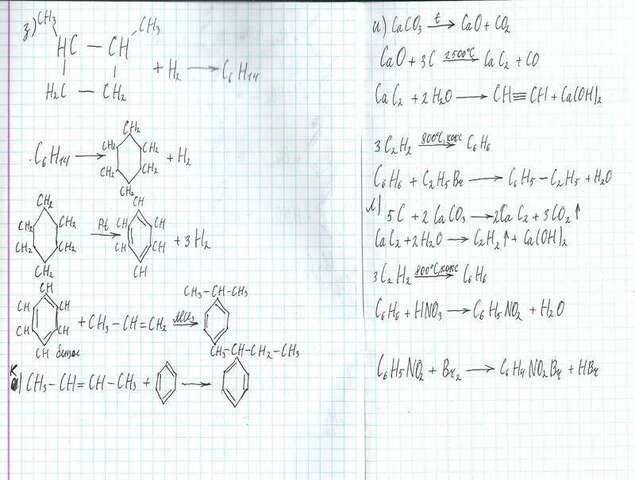 з) CH₃ CH₃
HC — CH
+ H₂ ⟶ C₆H₁₄
H₂C — CH₂
C₆H₁₄ ⟶ CH₂ CH₂ CH₂ CH₂ CH₂ CH₂ + H₂
CH₂ CH₂ CH₂ CH₂ CH₂ CH₂ Pt⟶ CH CH CH CH CH CH + 3H₂
CH CH CH CH CH CH бензол + CH₃–CH=CH₂ AlCl₃⟶ CH₃–CH–CH₃
CH₃–CH–CH₂–CH₃
к) CH₃–CH=CH–CH₃ + ⟶
и) CaCO₃ t⟶ CaO + CO₂
CaO + 3C 2500°C⟶ CaC₂ + CO
CaC₂ + 2H₂O ⟶ CH≡CH + Ca(OH)₂
3C₂H₂ 800°C, кокс⟶ C₆H₆
C₆H₆ + C₂H₅Br ⟶ C₆H₅–C₂H₅ + H₂O
л) 5C + 2CaCO₃ ⟶ 2CaC₂ + 3CO₂↑
CaC₂ + 2H₂O ⟶ C₂H₂↑ + Ca(OH)₂
3C₂H₂ 800°C, кокс⟶ C₆H₆
C₆H₆ + HNO₃ ⟶ C₆H₅NO₂ + H₂O
C₆H₅NO₂ + Br₂ ⟶ C₆H₄NO₂Br + HBr